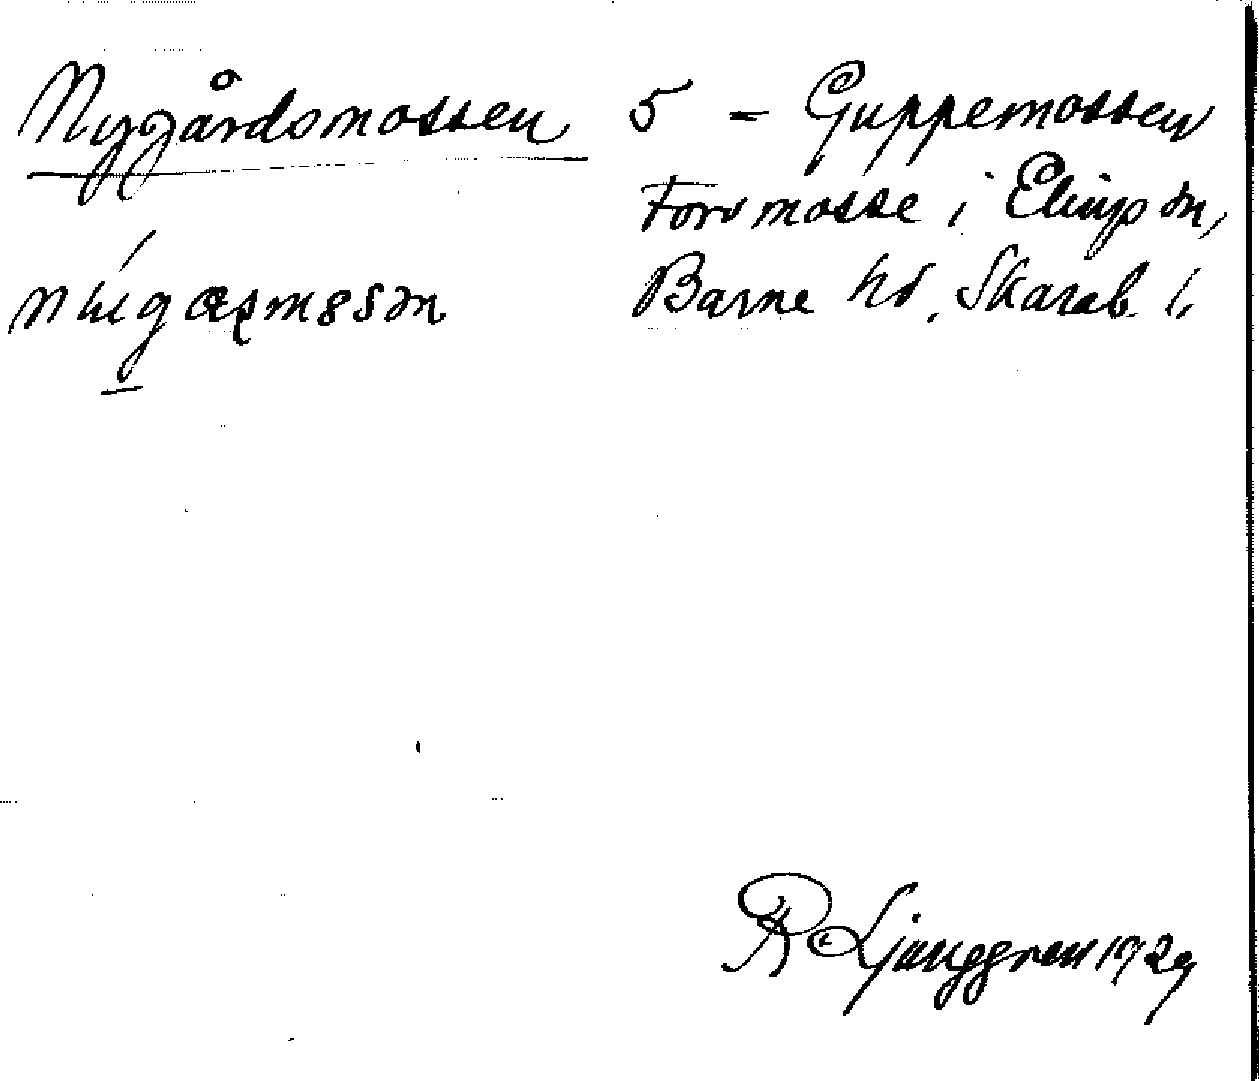 Nygårdsmossen 5 = Guppemossen
Torvmosse i Elings sn,
Barne hd, Skarab. l.
R Ljunggren 1929